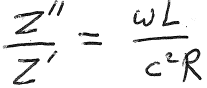 Z''/Z' = ωL/c²R